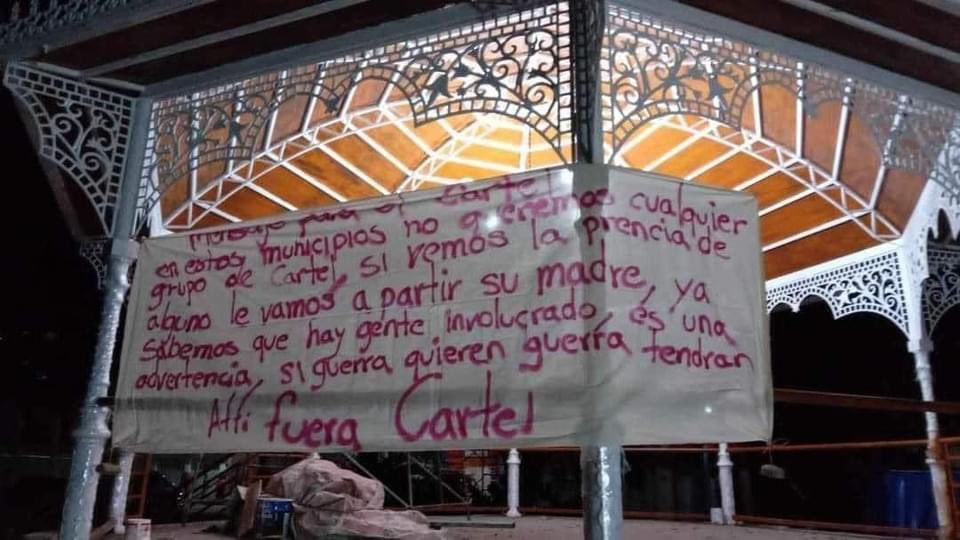 Mensaje para el Cartel
en estos municipios no queremos cualquier
grupo de Cartel, si vemos la prencia de
abuno le vamos a partir su madre, ya
sabemos que hay gente involucrado, es una
advertencia, si guerra quieren guerra tendran
Att: fuera Cartel